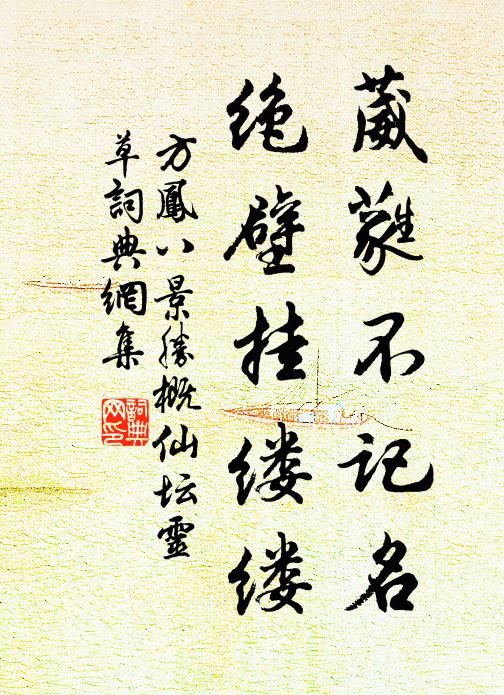 葳蕤不记名
绝壁挂缕缕
方鳳八景勝概仙坛靈
草詞典網集
詞典
网印